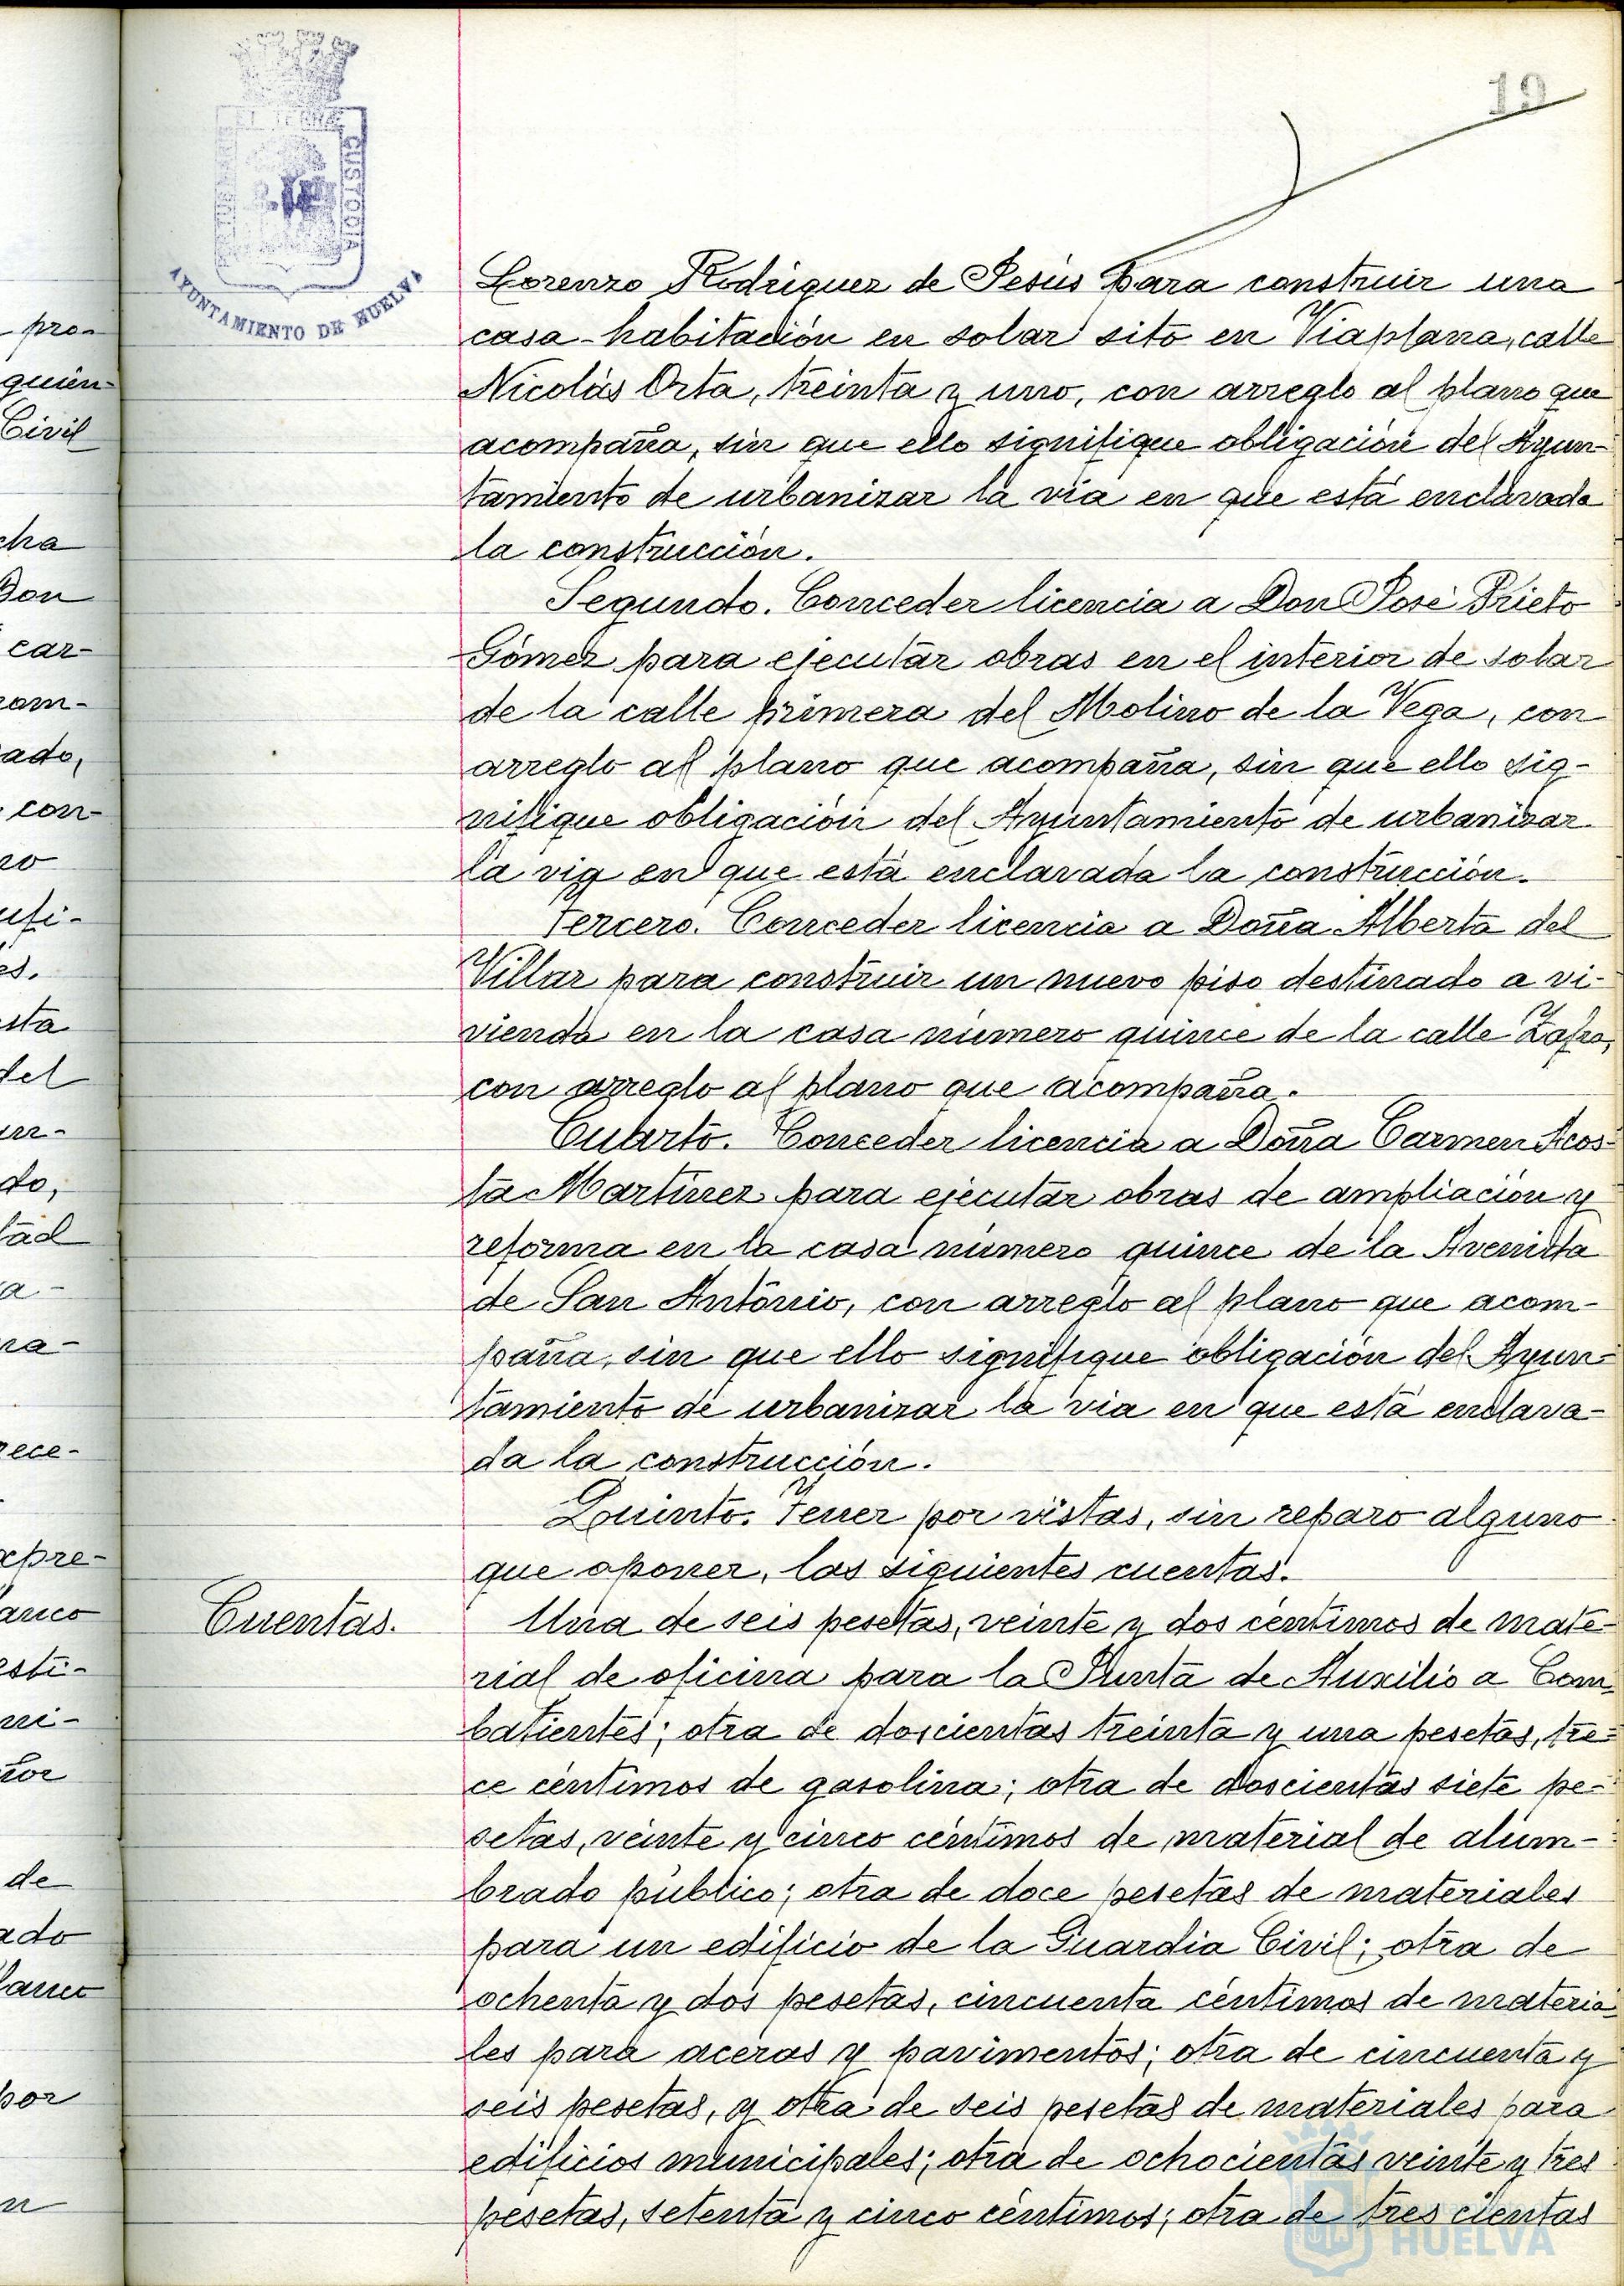 19
PORTUS MARIS
ET TERRAE
CUSTODIA
AYUNTAMIENTO DE HUELVA
Lorenzo Rodriguez de Jesús para construir una
casa-habitación en solar sito en Viaplana, calle
Nicolás Orta, treinta y uno, con arreglo al plano que
acompaña, sin que ello signifique obligación del Ayun-
tamiento de urbanizar la via en que está enclavada
la construcción.
Segundo. Conceder licencia a Don José Prieto
Gómez para ejecutar obras en el interior de solar
de la calle primera del Molino de la Vega, con
arreglo al plano que acompaña, sin que ello sig-
nifique obligación del Ayuntamiento de urbanizar
la via en que está enclavada la construcción.
Tercero. Conceder licencia a Doña Alberta del
Villar para construir un nuevo piso destinado a vi-
vienda en la casa número quince de la calle Zafra,
con arreglo al plano que acompaña.
Cuarto. Conceder licencia a Doña Carmen Acos-
ta Martinez para ejecutar obras de ampliación y
reforma en la casa número quince de la Avenida
de San Antonio, con arreglo al plano que acom-
paña, sin que ello signifique obligación del Ayun-
tamiento de urbanizar la via en que está enclava-
da la construcción.
Quinto. Tener por vistas, sin reparo alguno
que oponer, las siguientes cuentas.
Cuentas.
Una de seis pesetas, veinte y dos céntimos de mate-
rial de oficina para la Junta de Auxilio a Com-
batientes; otra de doscientas treinta y una pesetas, tre-
ce céntimos de gasolina; otra de doscientas siete pe-
setas, veinte y cinco céntimos de material de alum-
brado público; otra de doce pesetas de materiales
para un edificio de la Guardia Civil; otra de
ochenta y dos pesetas, cincuenta céntimos de materia-
les para aceras y pavimentos; otra de cincuenta y
seis pesetas, y otra de seis pesetas de materiales para
edificios municipales; otra de ochocientas veinte y tres
pesetas, setenta y cinco céntimos; otra de tres cientas
HUELVA
pro-
quien-
Civil
cha
Don
car-
om-
ado,
con-
ro
ufi-
es.
sta
del
un-
do,
tad
a-
ra-
rece-
xpre-
anco
esti-
ni-
tor
de
ado
lanco
por
n